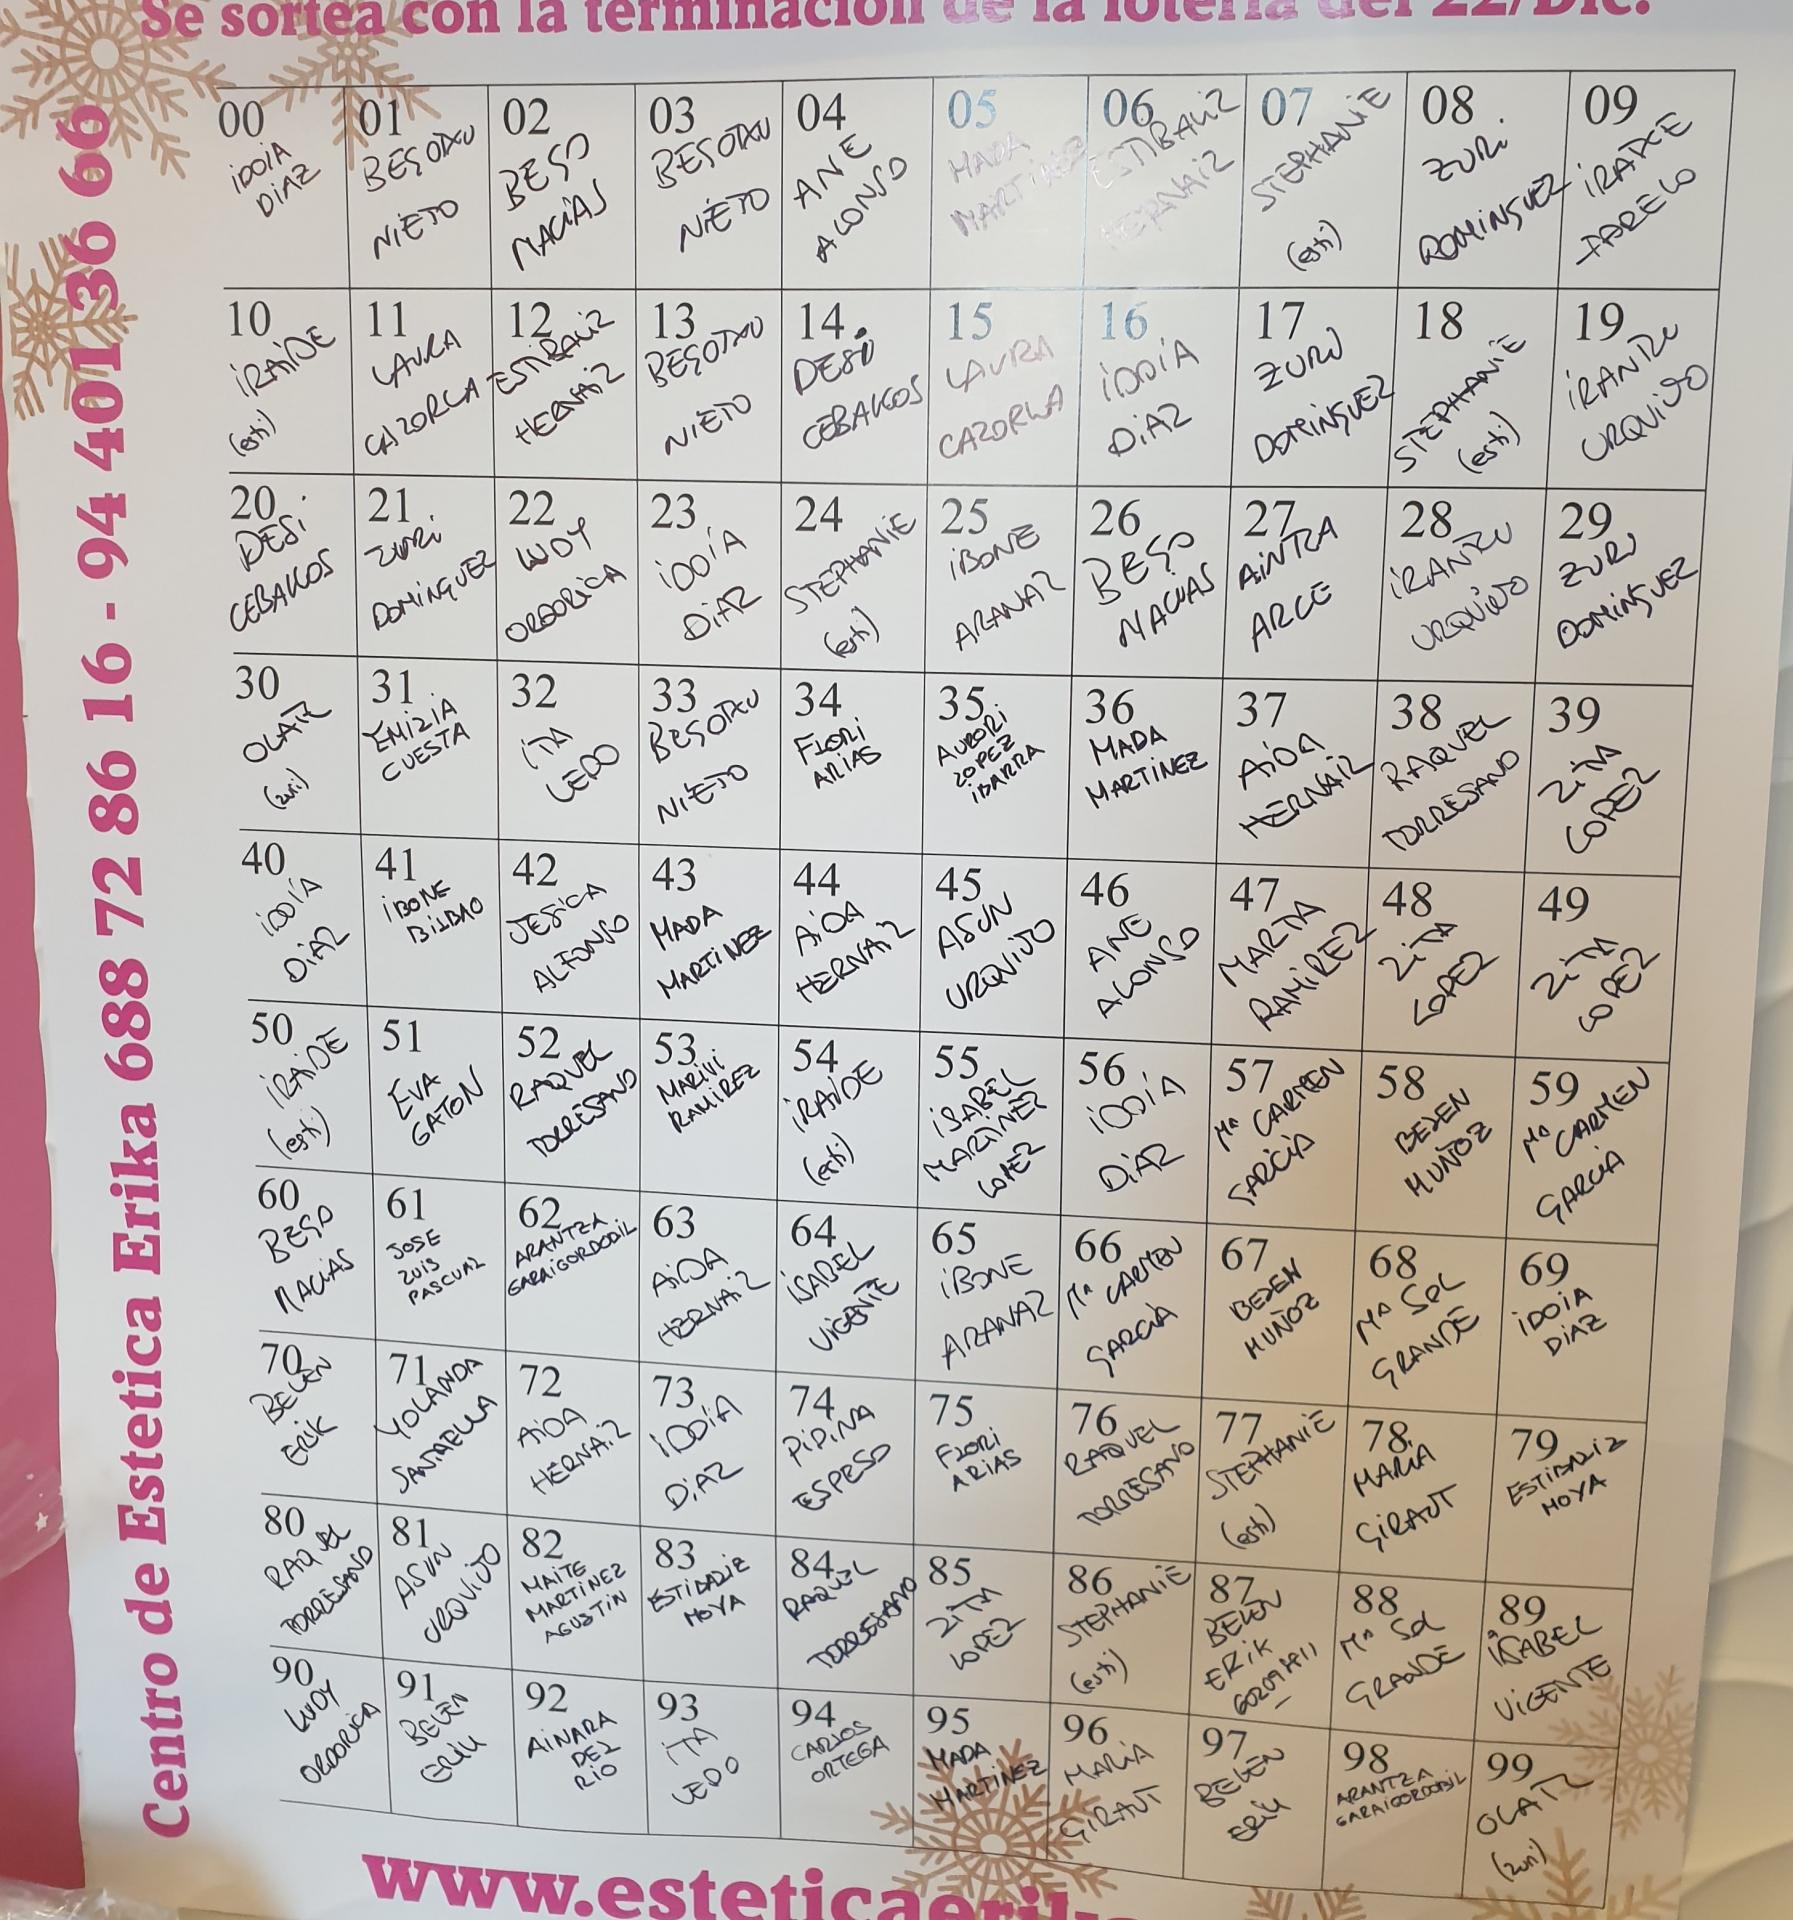 Se sortea con la terminación de la lotería del 22/Dic.
Centro de Estetica Erika 688 72 86 16 - 94 401 36 66
00 IDOIA DIAZ
01 BESOTXU NIETO
02 BESO MACIAS
03 BESOTXU NIETO
04 ANE ALONSO
05 MADA MARTINEZ
06 ESTIBALIZ HERNAIZ
07 STEPHANIE (esti)
08 ZURI DOMINGUEZ
09
10 IRAIDE (esti)
11 LAURA CAZORLA
12 ESTIBALIZ HERNAIZ
13 BESOTXU NIETO
14 DESI CEBALLOS
15 LAURA CAZORLA
16 IDOIA DIAZ
17 ZURI DOMINGUEZ
18 STEPHANIE (esti)
19 IRANTZU URQUIJO
20 DESI CEBALLOS
21 ZURI DOMINGUEZ
22 LUDY ORDORICA
23 IDOIA DIAZ
24 STEPHANIE (esti)
25 IBONE ARANAZ
26 BESO MACIAS
27 ARCE
28 IRANTZU URQUIJO
29 ZURI DOMINGUEZ
30 OLATZ (zuri)
31 EMIZIA CUESTA
32 ITA LEDO
33 BESOTXU NIETO
34 FLORI ARIAS
35 AURORI LOPEZ IBARRA
36 MADA MARTINEZ
37 AIDA HERNAIZ
38 RAQUEL TORRESANO
39 ZITA LOPEZ
40 IDOIA DIAZ
41 IBONE BILBAO
42 JESICA ALFONSO
43 MADA MARTINEZ
44 AIDA HERNAIZ
45 ASUN URQUIJO
46 ANE ALONSO
47 MARTA RAMIREZ
48 ZITA LOPEZ
49 ZITA LOPEZ
50 IRAIDE (esti)
51 EVA GATON
52 RAQUEL TORRESANO
53 MARIVI RAMIREZ
54 IRAIDE (esti)
55 ISABEL MARTINEZ LOPEZ
56 IDOIA DIAZ
57 Mª CARMEN GARCIA
58 BELEN MUÑOZ
59 Mª CARMEN GARCIA
60 BESO MACIAS
61 JOSE LUIS PASCUAL
62 ARANTZA GARAIGORDOBIL
63 AIDA HERNAIZ
64 ISABEL VICENTE
65 IBONE ARANAZ
66 Mª CARMEN GARCIA
67 BELEN MUÑOZ
68 Mª SOL GRANDE
69 IDOIA DIAZ
70 BELEN ERIK
71 YOLANDA SANTAELLA
72 AIDA HERNAIZ
73 IDOIA DIAZ
74 PIPINA ESPESO
75 FLORI ARIAS
76 RAQUEL TORRESANO
77 STEPHANIE (esti)
78 MARIA GIRAUT
79 ESTIBALIZ MOYA
80 RAQUEL TORRESANO
81 ASUN URQUIJO
82 MAITE MARTINEZ AGUSTIN
83 ESTIBALIZ MOYA
84 RAQUEL TORRESANO
85 ZITA LOPEZ
86 STEPHANIE (esti)
87 BELEN ERIK
88 Mª Sol GRANDE
89 ISABEL VICENTE
90 LUDY ORDORICA
91 BELEN ERIK
92 AINARA DEL RIO
93 ITA LEDO
94 CARLOS ORTEGA
95 MADA MARTINEZ
96 MARIA GIRAUT
97 BELEN ERIK
98 ARANTZA GARAIGORDOBIL
99 OLATZ (zuri)
www.esteticaerika